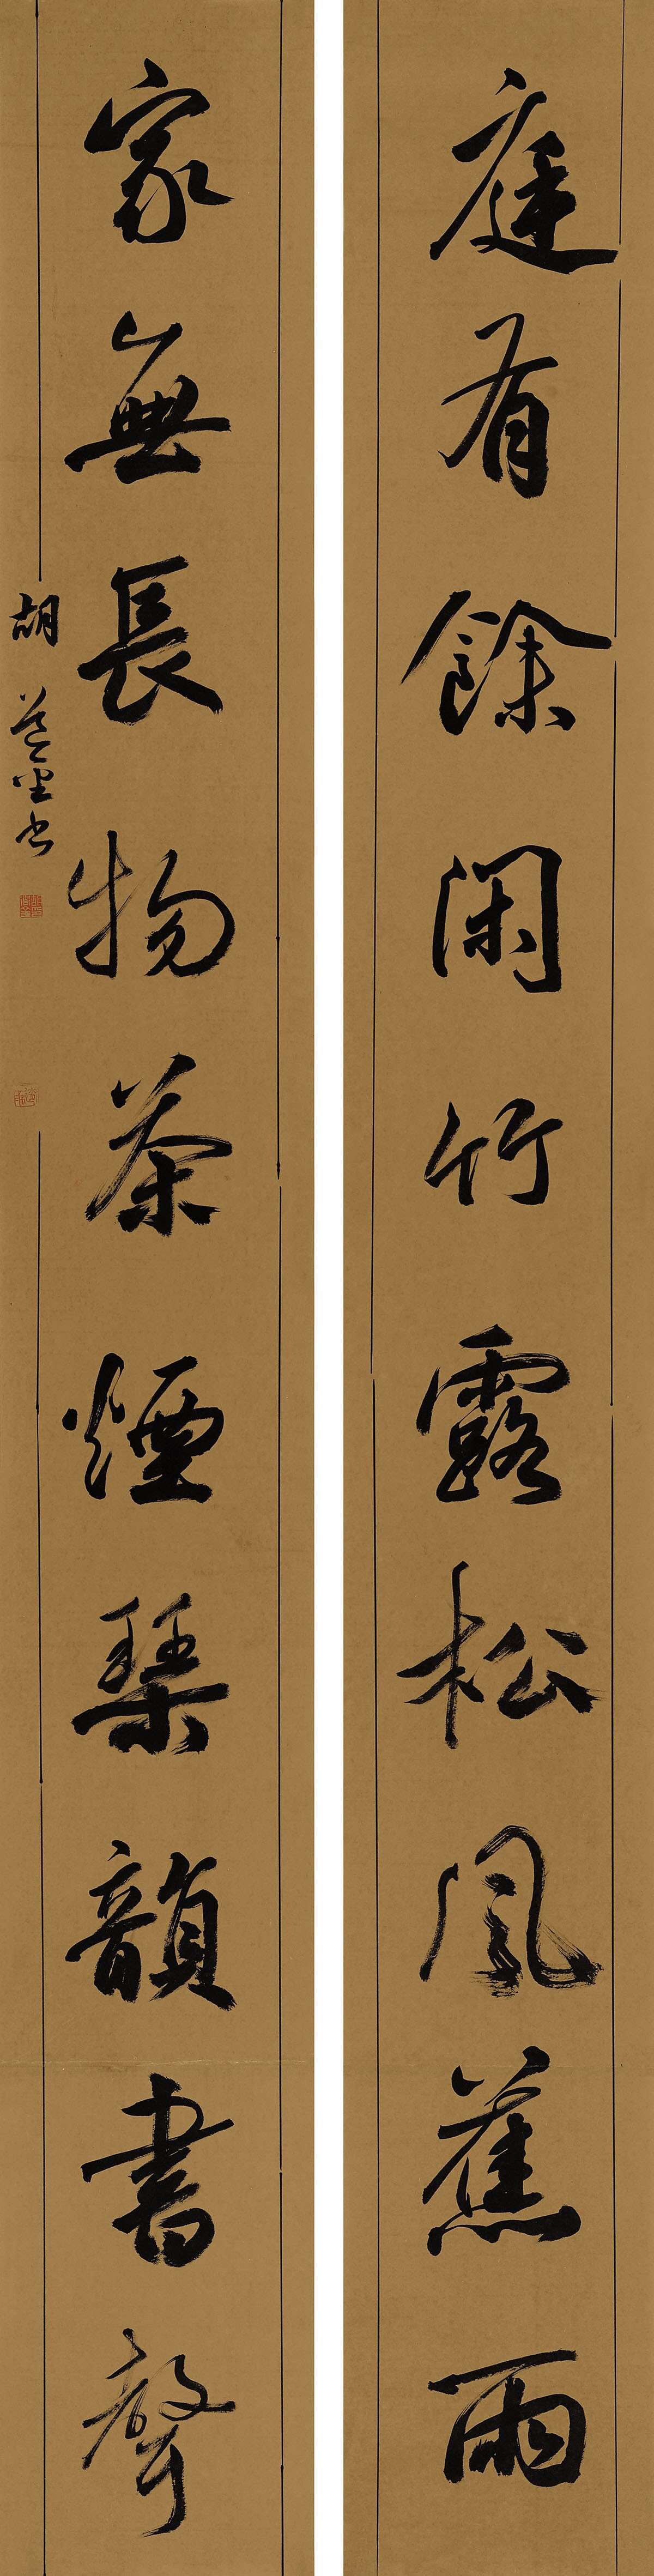 庭有餘閑竹露松風蕉雨
家無長物茶煙琴韻書聲
胡
書